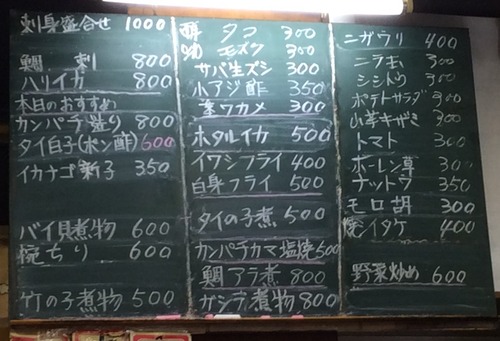 刺身盛合せ 1000
鯛 刺 800
ハリイカ 800
本日のおすすめ
カンパチ造り 800
タイ白子(ポン酢) 600
イカナゴ新子 350
バイ貝煮物 600
椀ちり 600
竹の子煮物 500
酢 タコ 300
物 モズク 300
サバ生ズシ 300
小アジ酢 350
茎ワカメ 300
ホタルイカ 500
イワシフライ 400
白身フライ 500
タイの子煮 500
カンパチカマ塩焼 500
鯛アラ煮 800
ガシラ煮物 800
ニガウリ 400
ニラ玉 300
シシトウ 300
ポテトサラダ 300
山芋キザミ 300
トマト 300
ホーレン草 300
ナットウ 350
モロ胡 300
焼イタケ 400
野菜炒め 600